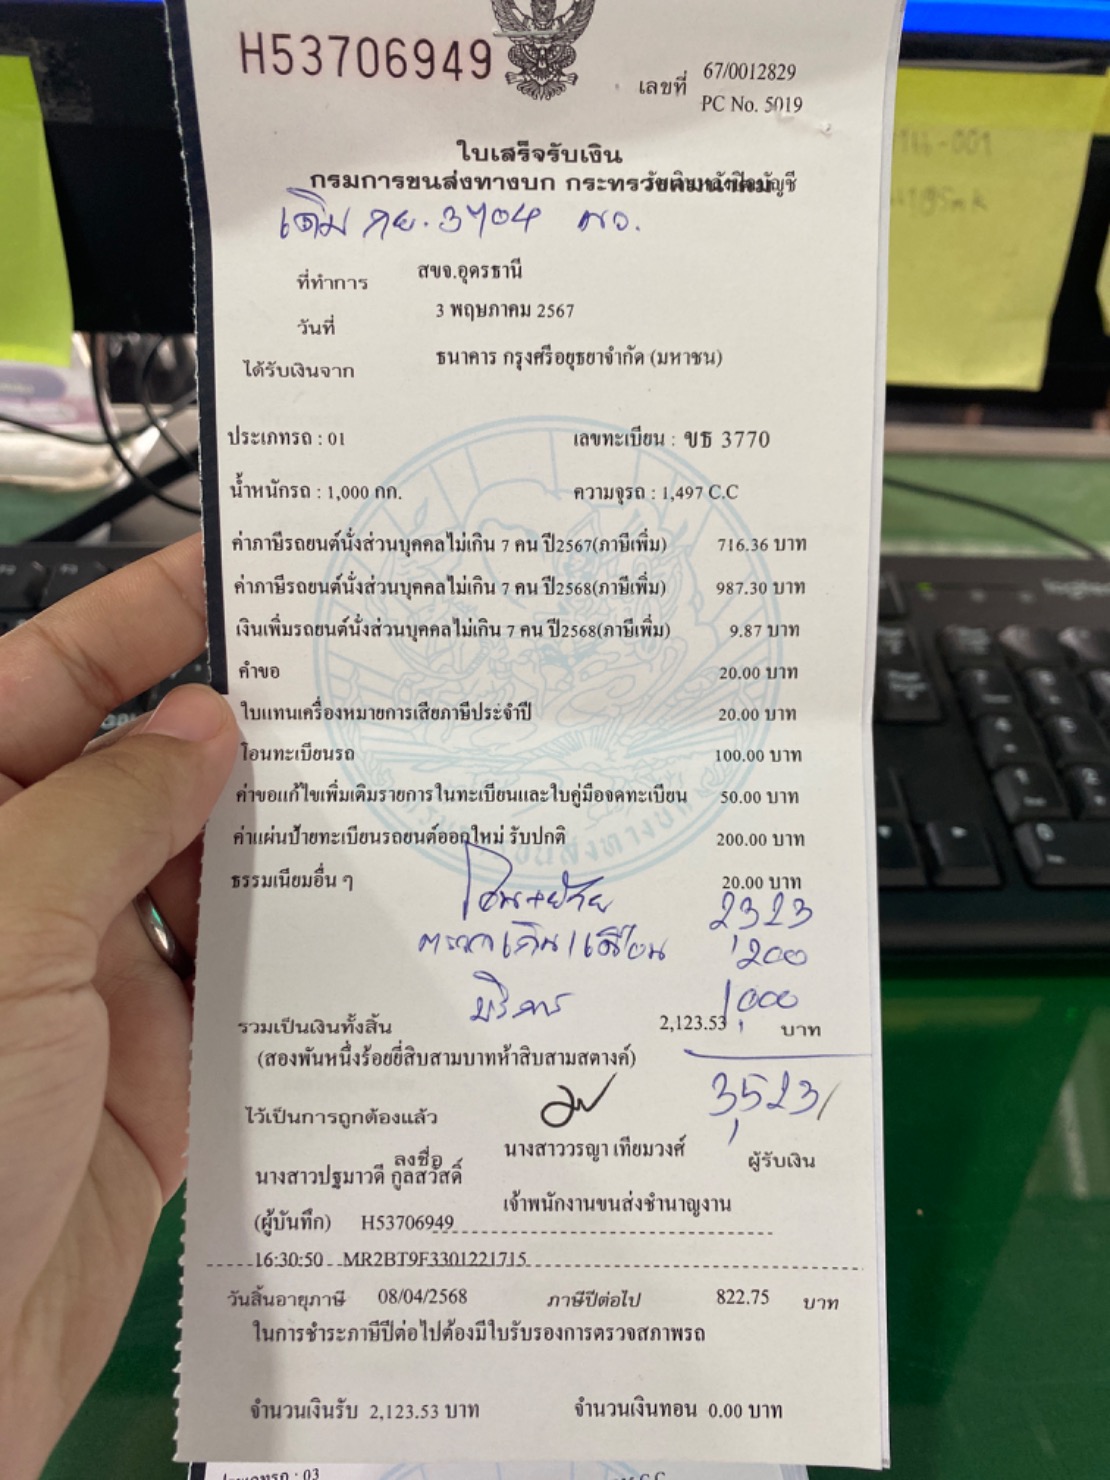 H53706949
เลขที่ 67/0012829
PC No. 5019
ใบเสร็จรับเงิน
กรมการขนส่งทางบก กระทรวงคมนาคม
เดิม กย. 3704
ที่ทำการ สขจ.อุดรธานี
วันที่ 3 พฤษภาคม 2567
ได้รับเงินจาก ธนาคาร กรุงศรีอยุธยาจำกัด (มหาชน)
ประเภทรถ : 01 เลขทะเบียน : ขธ 3770
น้ำหนักรถ : 1,000 กก. ความจุรถ : 1,497 C.C
ค่าภาษีรถยนต์นั่งส่วนบุคคลไม่เกิน 7 คน ปี2567(ภาษีเพิ่ม) 716.36 บาท
ค่าภาษีรถยนต์นั่งส่วนบุคคลไม่เกิน 7 คน ปี2568(ภาษีเพิ่ม) 987.30 บาท
เงินเพิ่มรถยนต์นั่งส่วนบุคคลไม่เกิน 7 คน ปี2568(ภาษีเพิ่ม) 9.87 บาท
คำขอ 20.00 บาท
ใบแทนเครื่องหมายการเสียภาษีประจำปี 20.00 บาท
โอนทะเบียนรถ 100.00 บาท
ค่าขอแก้ไขเพิ่มเติมรายการในทะเบียนและใบคู่มือจดทะเบียน 50.00 บาท
ค่าแผ่นป้ายทะเบียนรถยนต์ออกใหม่ รับปกติ 200.00 บาท
ธรรมเนียมอื่น ๆ 20.00 บาท
โอน+ย้าย 2,323
200
บริการ 1,000
รวมเป็นเงินทั้งสิ้น 2,123.53 บาท
(สองพันหนึ่งร้อยยี่สิบสามบาทห้าสิบสามสตางค์)
3,523/
ไว้เป็นการถูกต้องแล้ว
ลงชื่อ นางสาววรญา เทียมวงศ์ ผู้รับเงิน
นางสาวปฐมาวดี กูลสวัสดิ์
เจ้าพนักงานขนส่งชำนาญงาน
(ผู้บันทึก) H53706949
16:30:50 MR2BT9F3301221715
วันสิ้นอายุภาษี 08/04/2568 ภาษีปีต่อไป 822.75 บาท
ในการชำระภาษีปีต่อไปต้องมีใบรับรองการตรวจสภาพรถ
จำนวนเงินรับ 2,123.53 บาท จำนวนเงินทอน 0.00 บาท